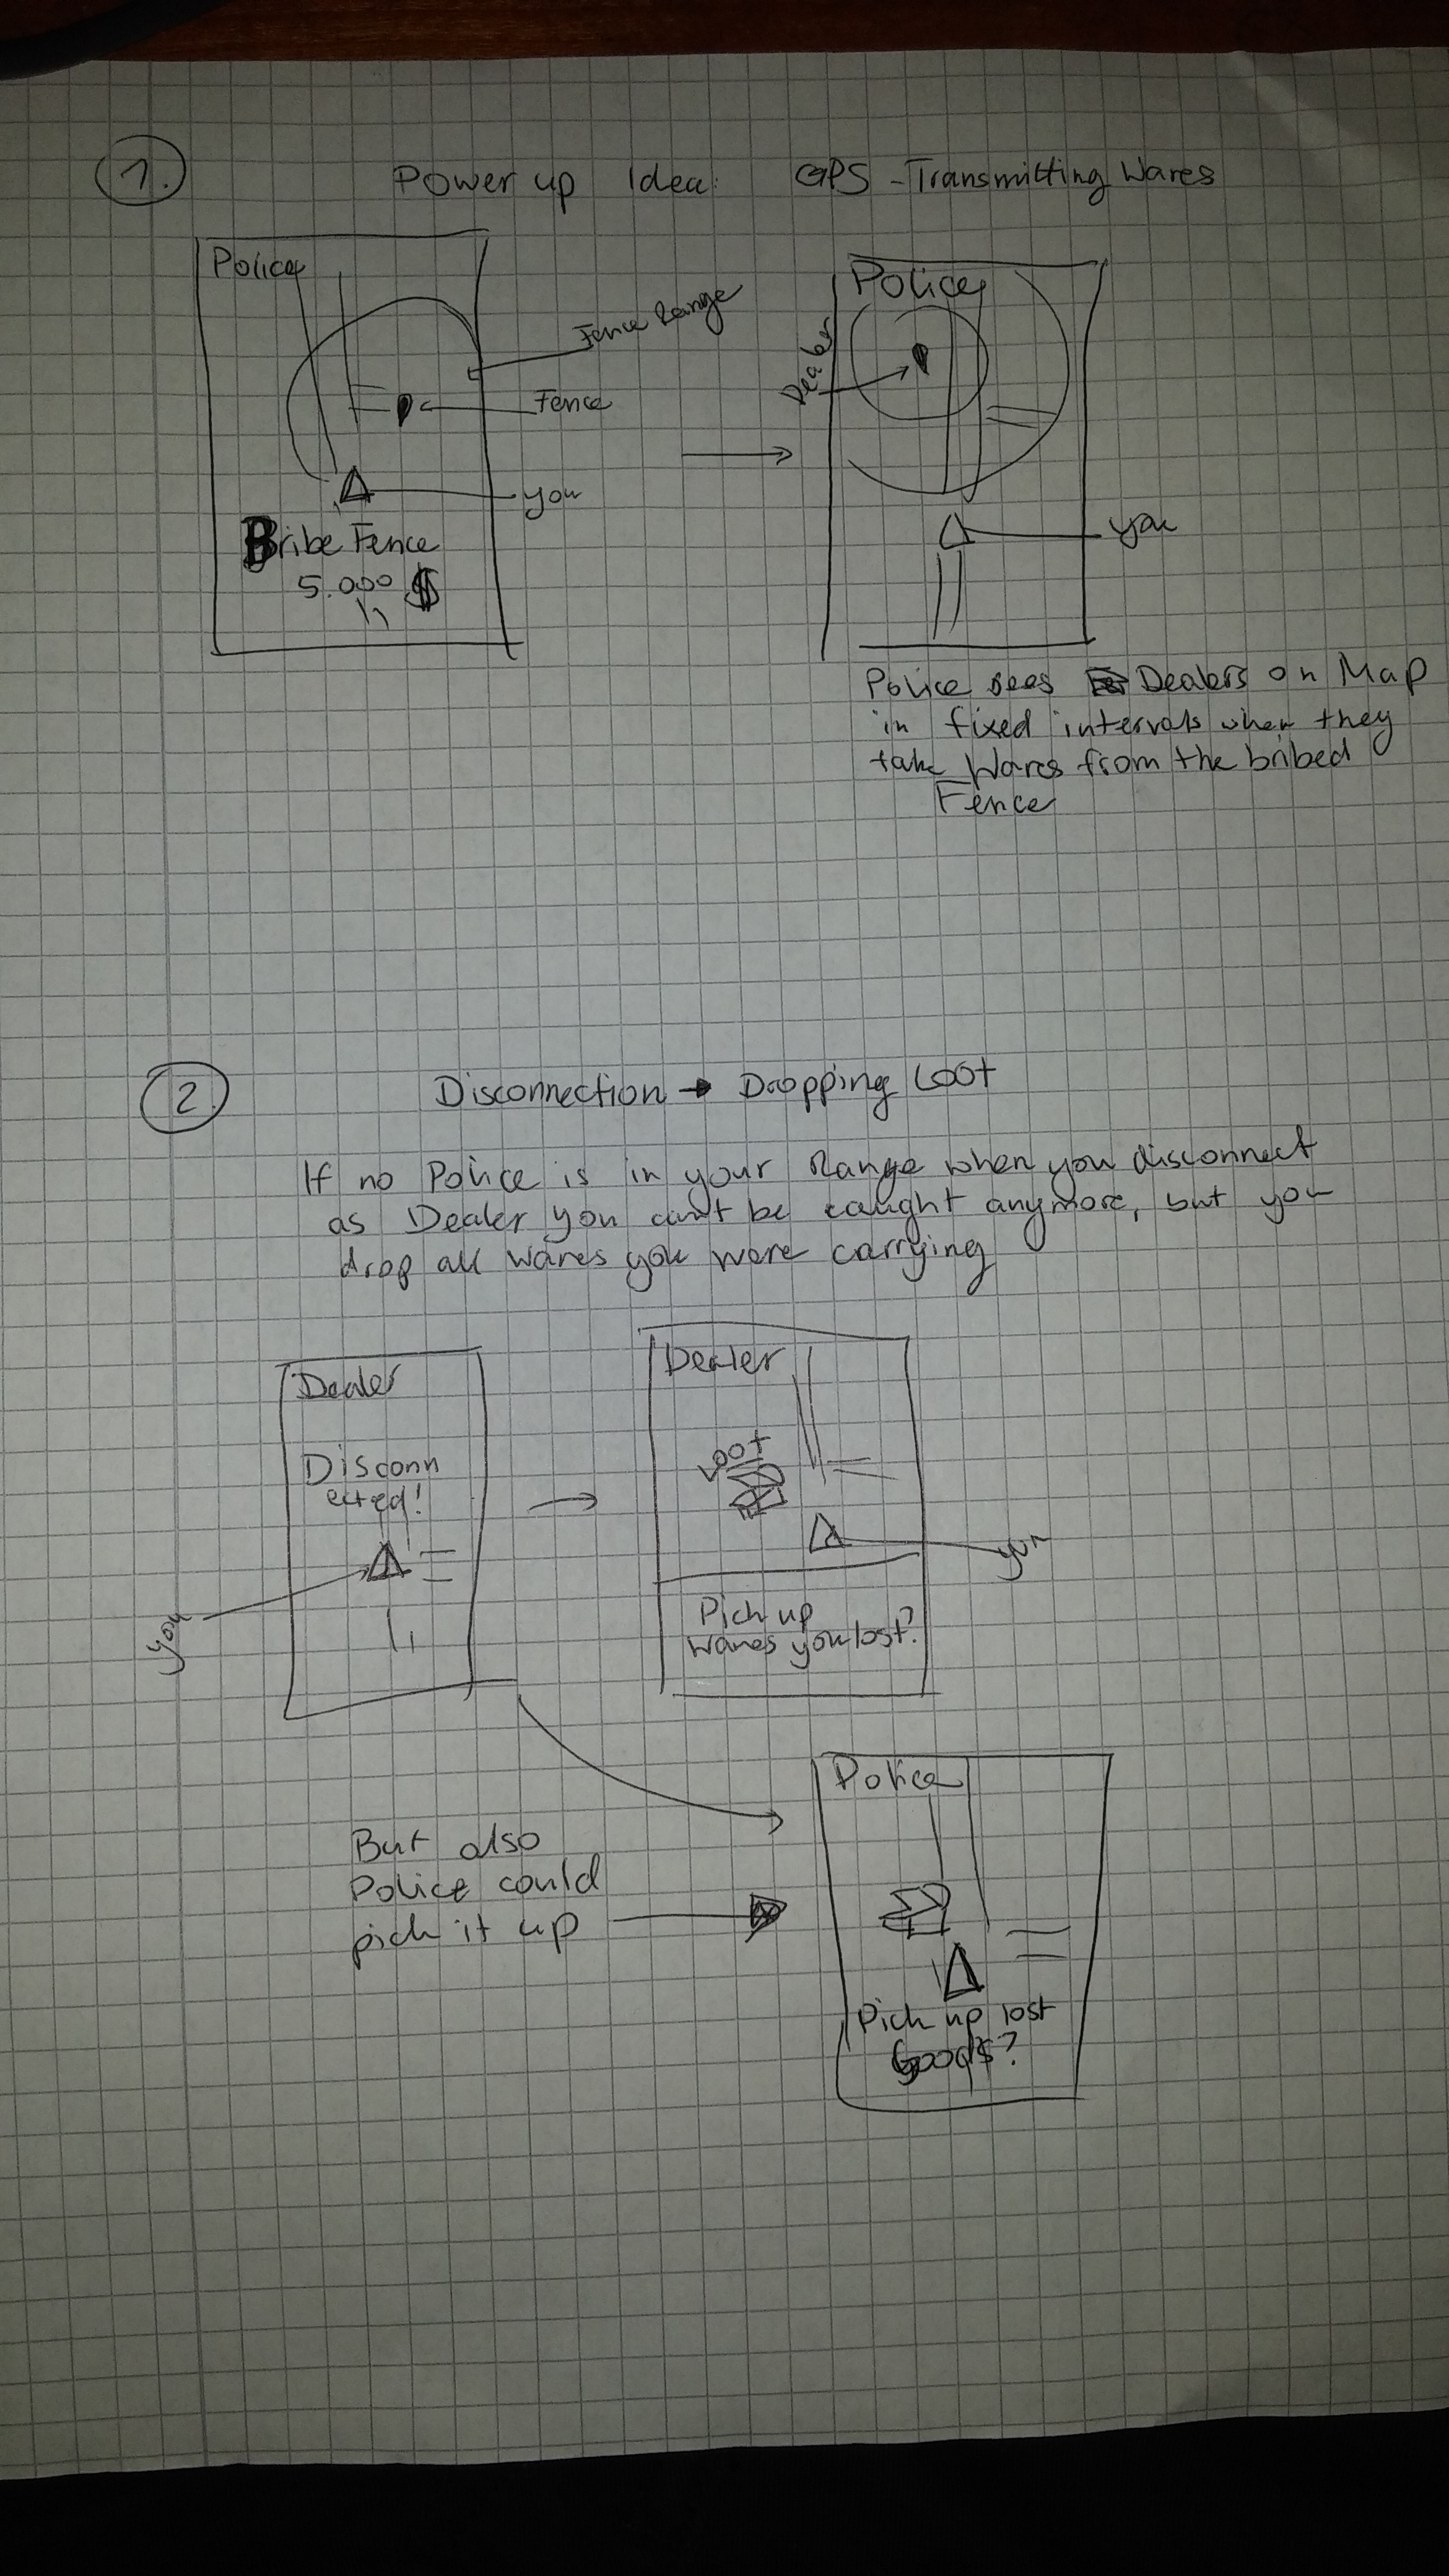 1.
Power up Idea: GPS-Transmitting Wares
Police
Fence Range
Fence
you
Bribe Fence
5.000 $
Police
Dealer
you
Police sees Dealers on Map
in fixed intervals when they
take Wares from the bribed
Fence
2
Disconnection → Dropping Loot
If no Police is in your Range when you disconnect
as Dealer you can't be caught anymore, but you
drop all wares you were carrying
Dealer
Disconn
ected!
you
Dealer
Loot
you
Pick up
wares you lost?
But also
Police could
pick it up
Police
Pick up lost
Goods?